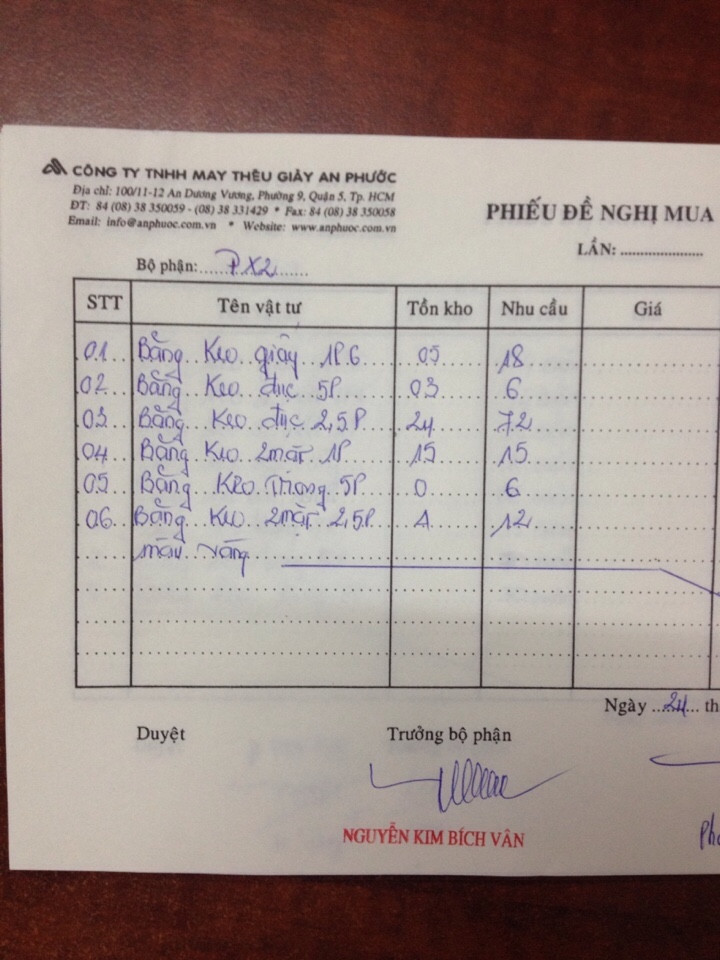 CÔNG TY TNHH MAY THÊU GIÀY AN PHƯỚC
Địa chỉ: 100/11-12 An Dương Vương, Phường 9, Quận 5, Tp. HCM
ĐT: 84 (08) 38 350059 - (08) 38 331429 * Fax: 84 (08) 38 350058
Email: info@anphuoc.com.vn * Website: www.anphuoc.com.vn
PHIẾU ĐỀ NGHỊ MUA
LẦN: ....................
Bộ phận:.....PX2.......
STT Tên vật tư Tồn kho Nhu cầu Giá
01 Băng Keo giấy 1P6 05 18
02 Băng Keo đục 5P 03 6
03 Băng Keo đục 2,5P 24 72
04 Băng Keo 2 mặt 1P 15 15
05 Băng Keo Trong 5P 0 6
06 Băng Keo 2 mặt 2,5P 1 12
màu vàng
Ngày ..24... th
Duyệt Trưởng bộ phận
NGUYỄN KIM BÍCH VÂN